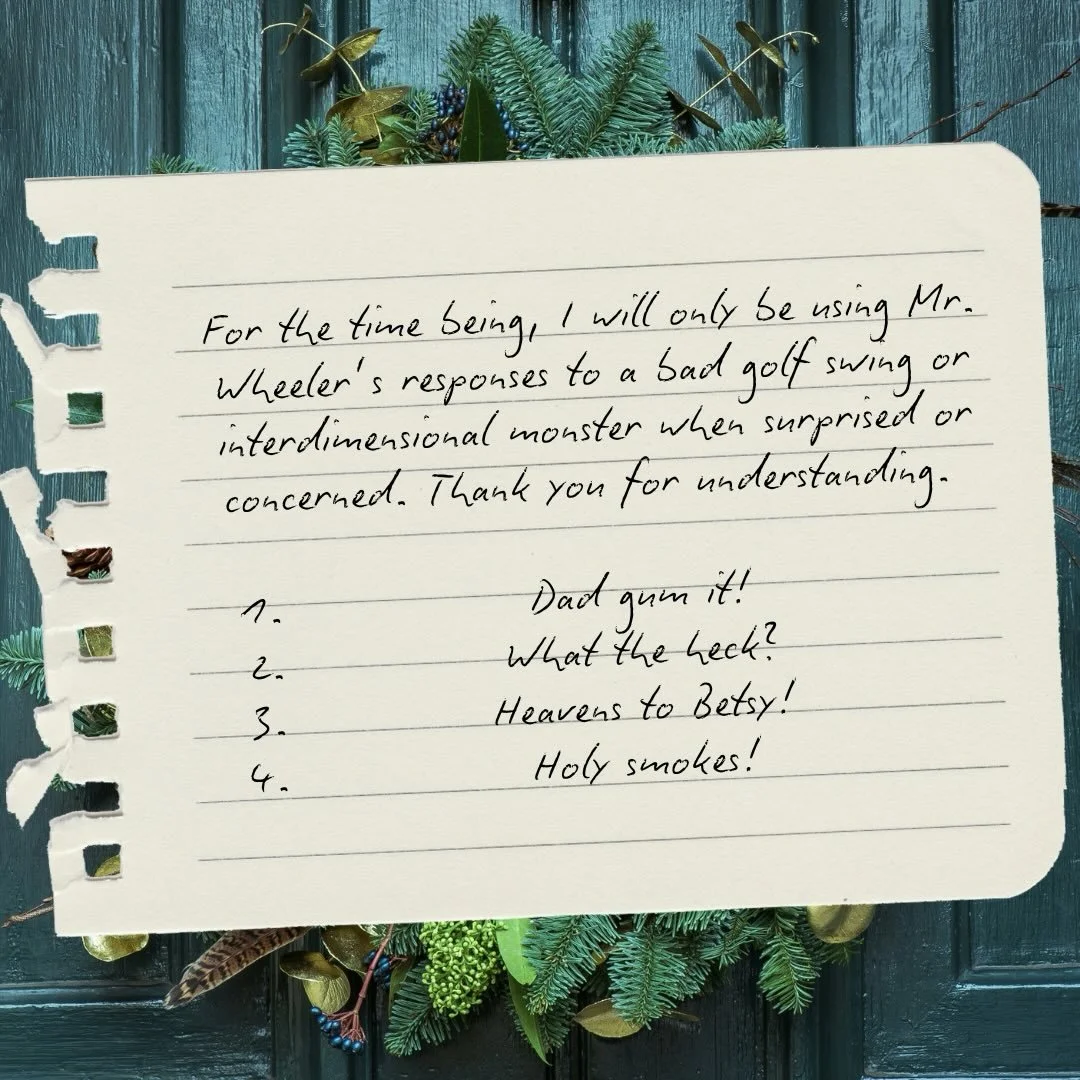 For the time being, I will only be using Mr.
Wheeler's responses to a bad golf swing or
interdimensional monster when surprised or
concerned. Thank you for understanding.
1. Dad gum it!
2. What the heck?
3. Heavens to Betsy!
4. Holy smokes!